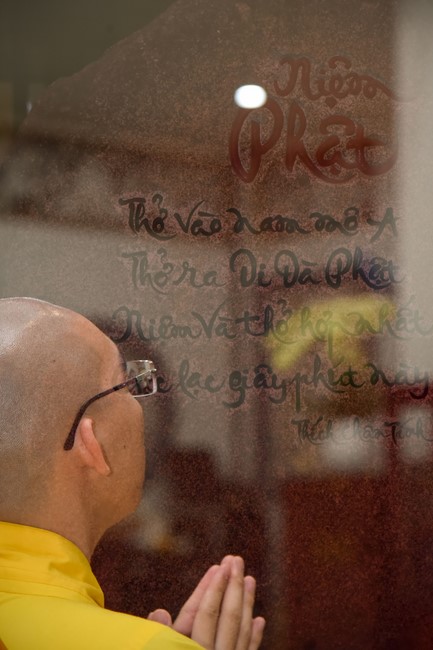 Niệm
Phật
Thở vào nam mô A
Thở ra Di Đà Phật
Niệm và thở hợp nhất
lạc giây phút này
Thích Chân Tính